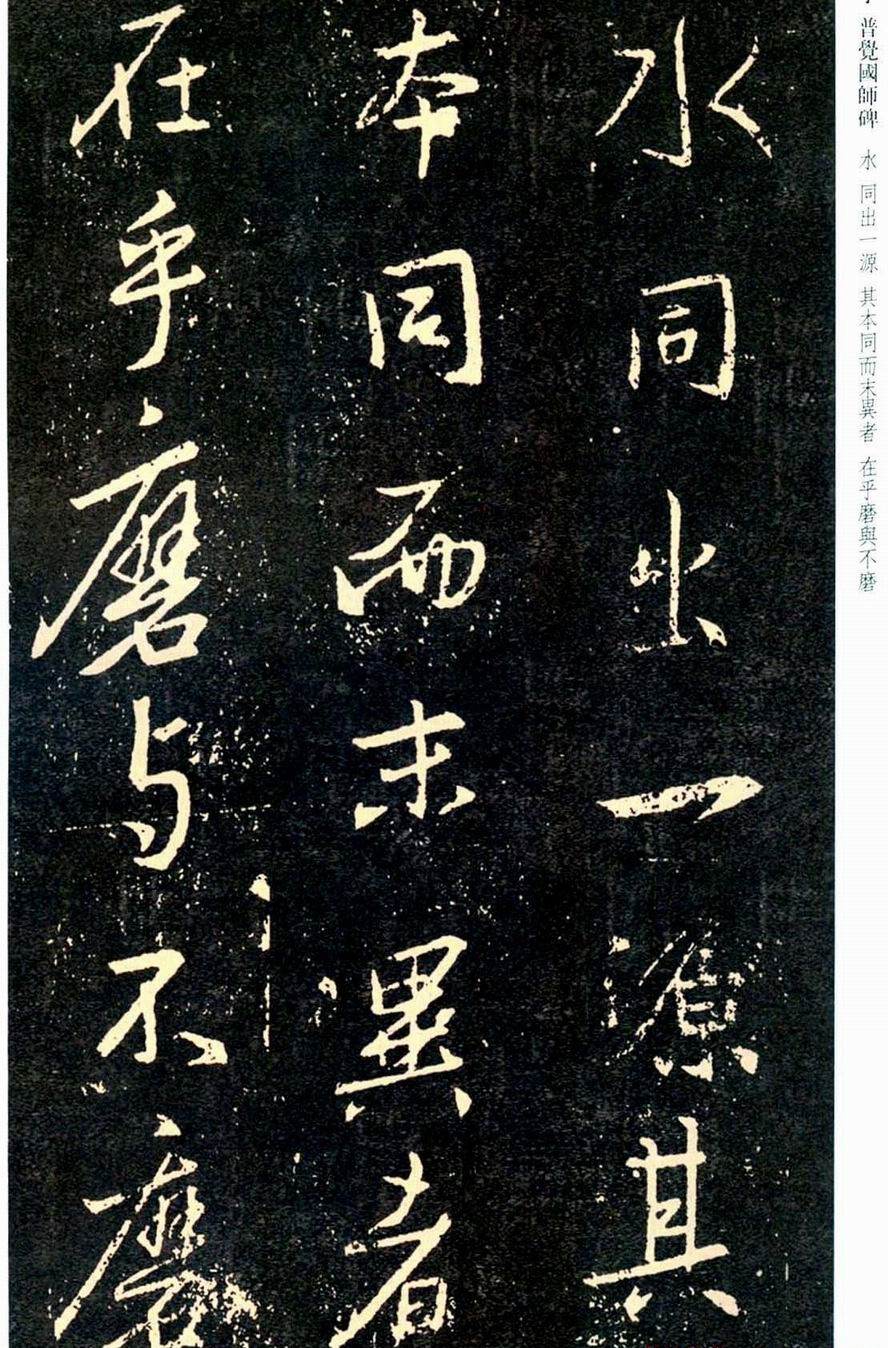 水同出一源其
本同而末異者
在乎磨与不磨
普覺國師碑 水 同出一源 其本同而末異者 在乎磨與不磨